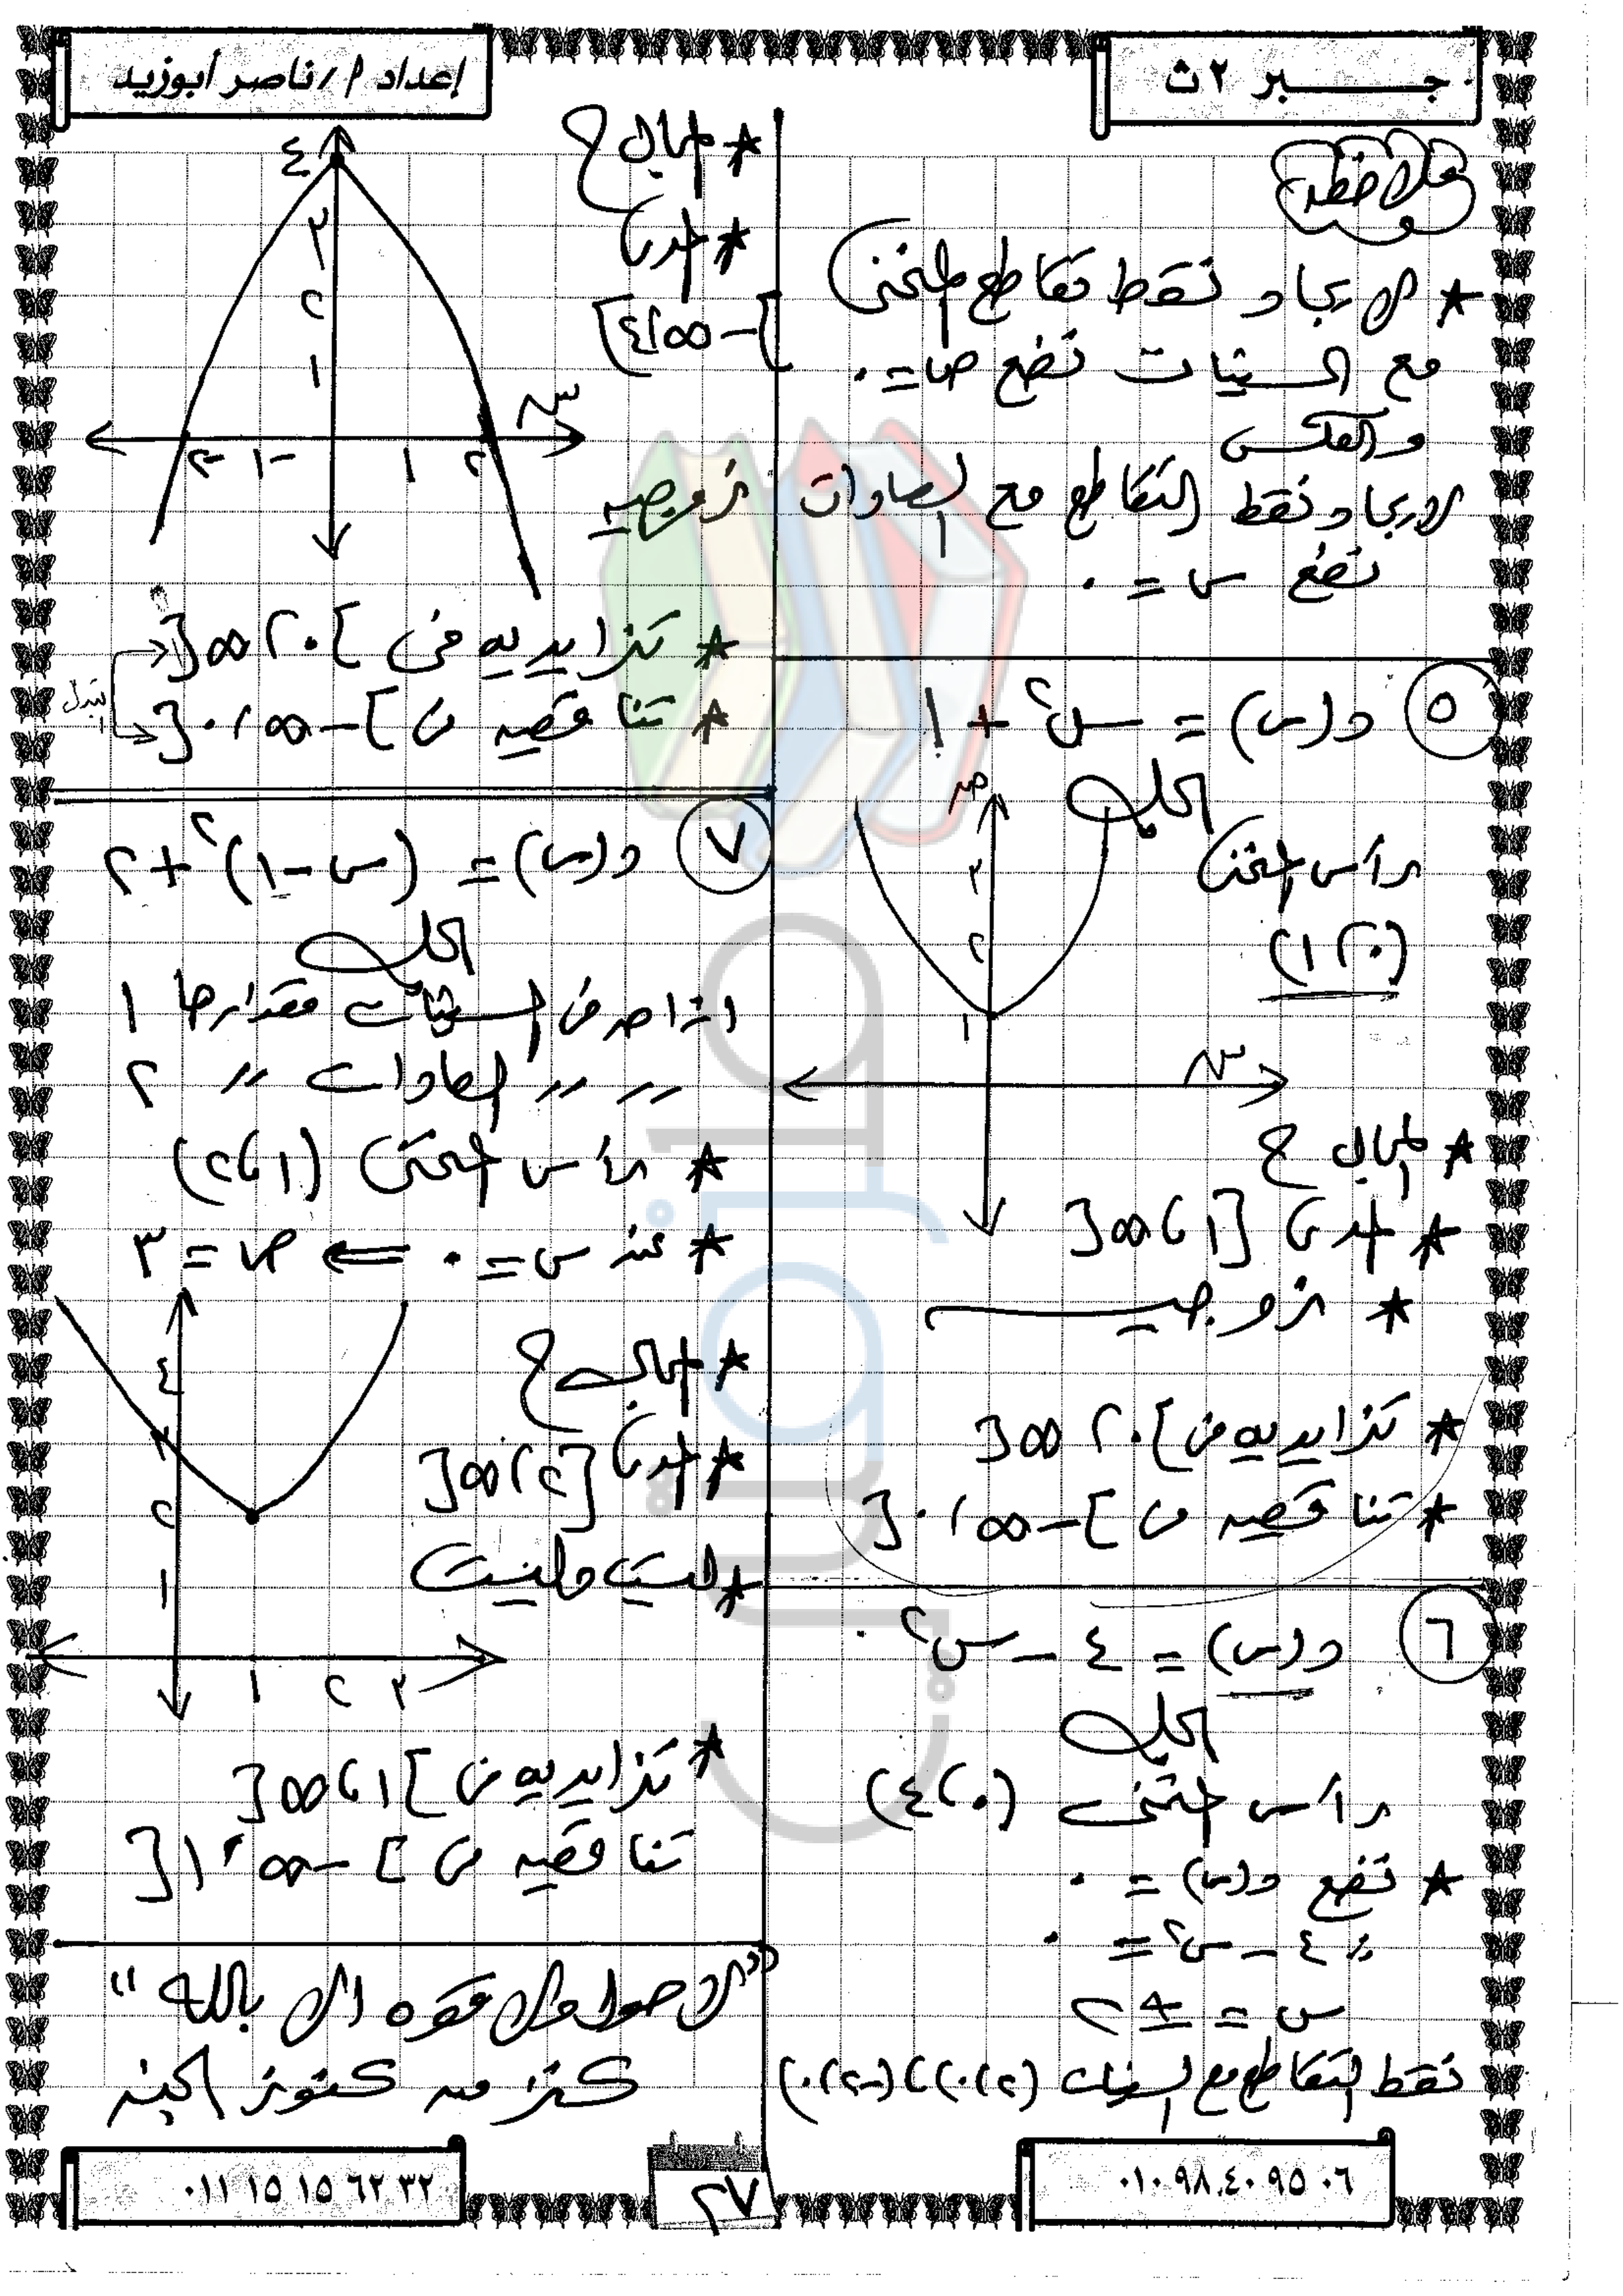 جـــــبر ٢ ث
إعداد / أ/ ناصر أبوزيد
ملاحظه
* لإيجاد نقط تقاطع المنحنى
مع السينات نضع ص = ٠
والعكس
لإيجاد نقط التقاطع مع الصادات
نضع س = ٠
٥ د(س) = س٢ + ١
الحل
رأس المنحنى
(٠، ١)
ص
٣
٢
١
س
* المجال ح
* المدى [١، ∞[
* زوجيـــــه
* تزايديه فى ]٠، ∞[
* تناقصيه فى ]-∞، ٠[
٦ د(س) = ٤ - س٢
الحل
رأس المنحنى (٠، ٤)
* نضع د(س) = ٠
∴ ٤ - س٢ = ٠
س = ± ٢
نقط التقاطع مع السينات (٢، ٠)، (-٢، ٠)
* المجال ح
* المدى
]-∞، ٤]
زوجيه
٤
٣
٢
١
س
-٢ -١ ١ ٢
* تزايديه فى ]٠، ∞[
* تناقصيه فى ]-∞، ٠[
تبدل
٧ د(س) = (س - ١)٢ + ٢
الحل
ازاحه فى السينات مقدارها ١
〃 〃 الصادات 〃 ٢
* رأس المنحنى (١، ٢)
* عند س = ٠ ⇐ ص = ٣
* المجال ح
* المدى [٢، ∞[
* ليست
٤
٣
٢
١
١ ٢ ٣
* تزايديه فى ]١، ∞[
تناقصيه فى ]-∞، ١[
"لا حول ولا قوه الا بالله"
كنز من كنوز الجنه
٠١٠٩٨٤٠٩٥٠٦
٢٧
٠١١ ١٥ ١٥ ٦٢ ٣٢